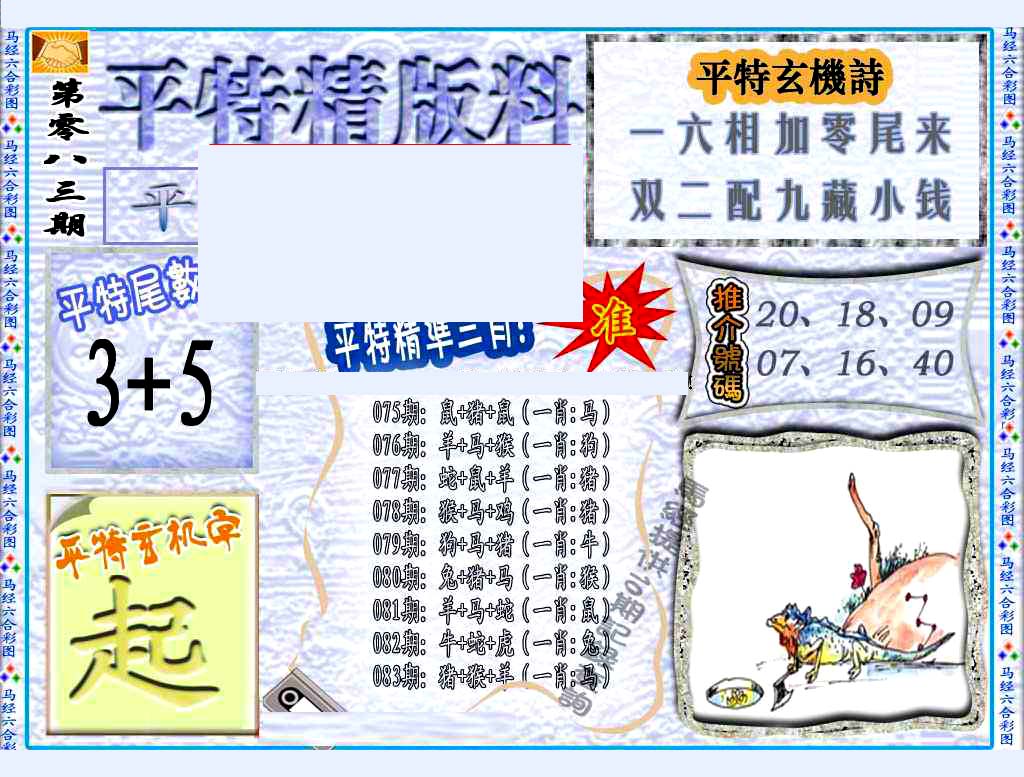 马经六合彩图
马经六合彩图
马经六合彩图
马经六合彩图
马经六合彩图
马经六合彩图
马经六合彩
第零八三期
平特精版料
平
平特玄機詩
一六相加零尾来
双二配九藏小钱
平特尾數
3+5
平特精準三肖!
准
推介號碼
20、18、09
07、16、40
075期: 鼠+猪+鼠(一肖:马)
076期: 羊+马+猴(一肖:狗)
077期: 蛇+鼠+羊(一肖:猪)
078期: 猴+马+鸡(一肖:猪)
079期: 狗+马+猪(一肖:牛)
080期: 兔+猪+马(一肖:猴)
081期: 羊+马+蛇(一肖:鼠)
082期: 牛+蛇+虎(一肖:兔)
083期: 猪+猴+羊(一肖:马)
平特玄机字
起
马经六合彩图
马经六合彩图
马经六合彩图
马经六合彩图
马经六合彩图
马经六合彩图
马经六合彩图